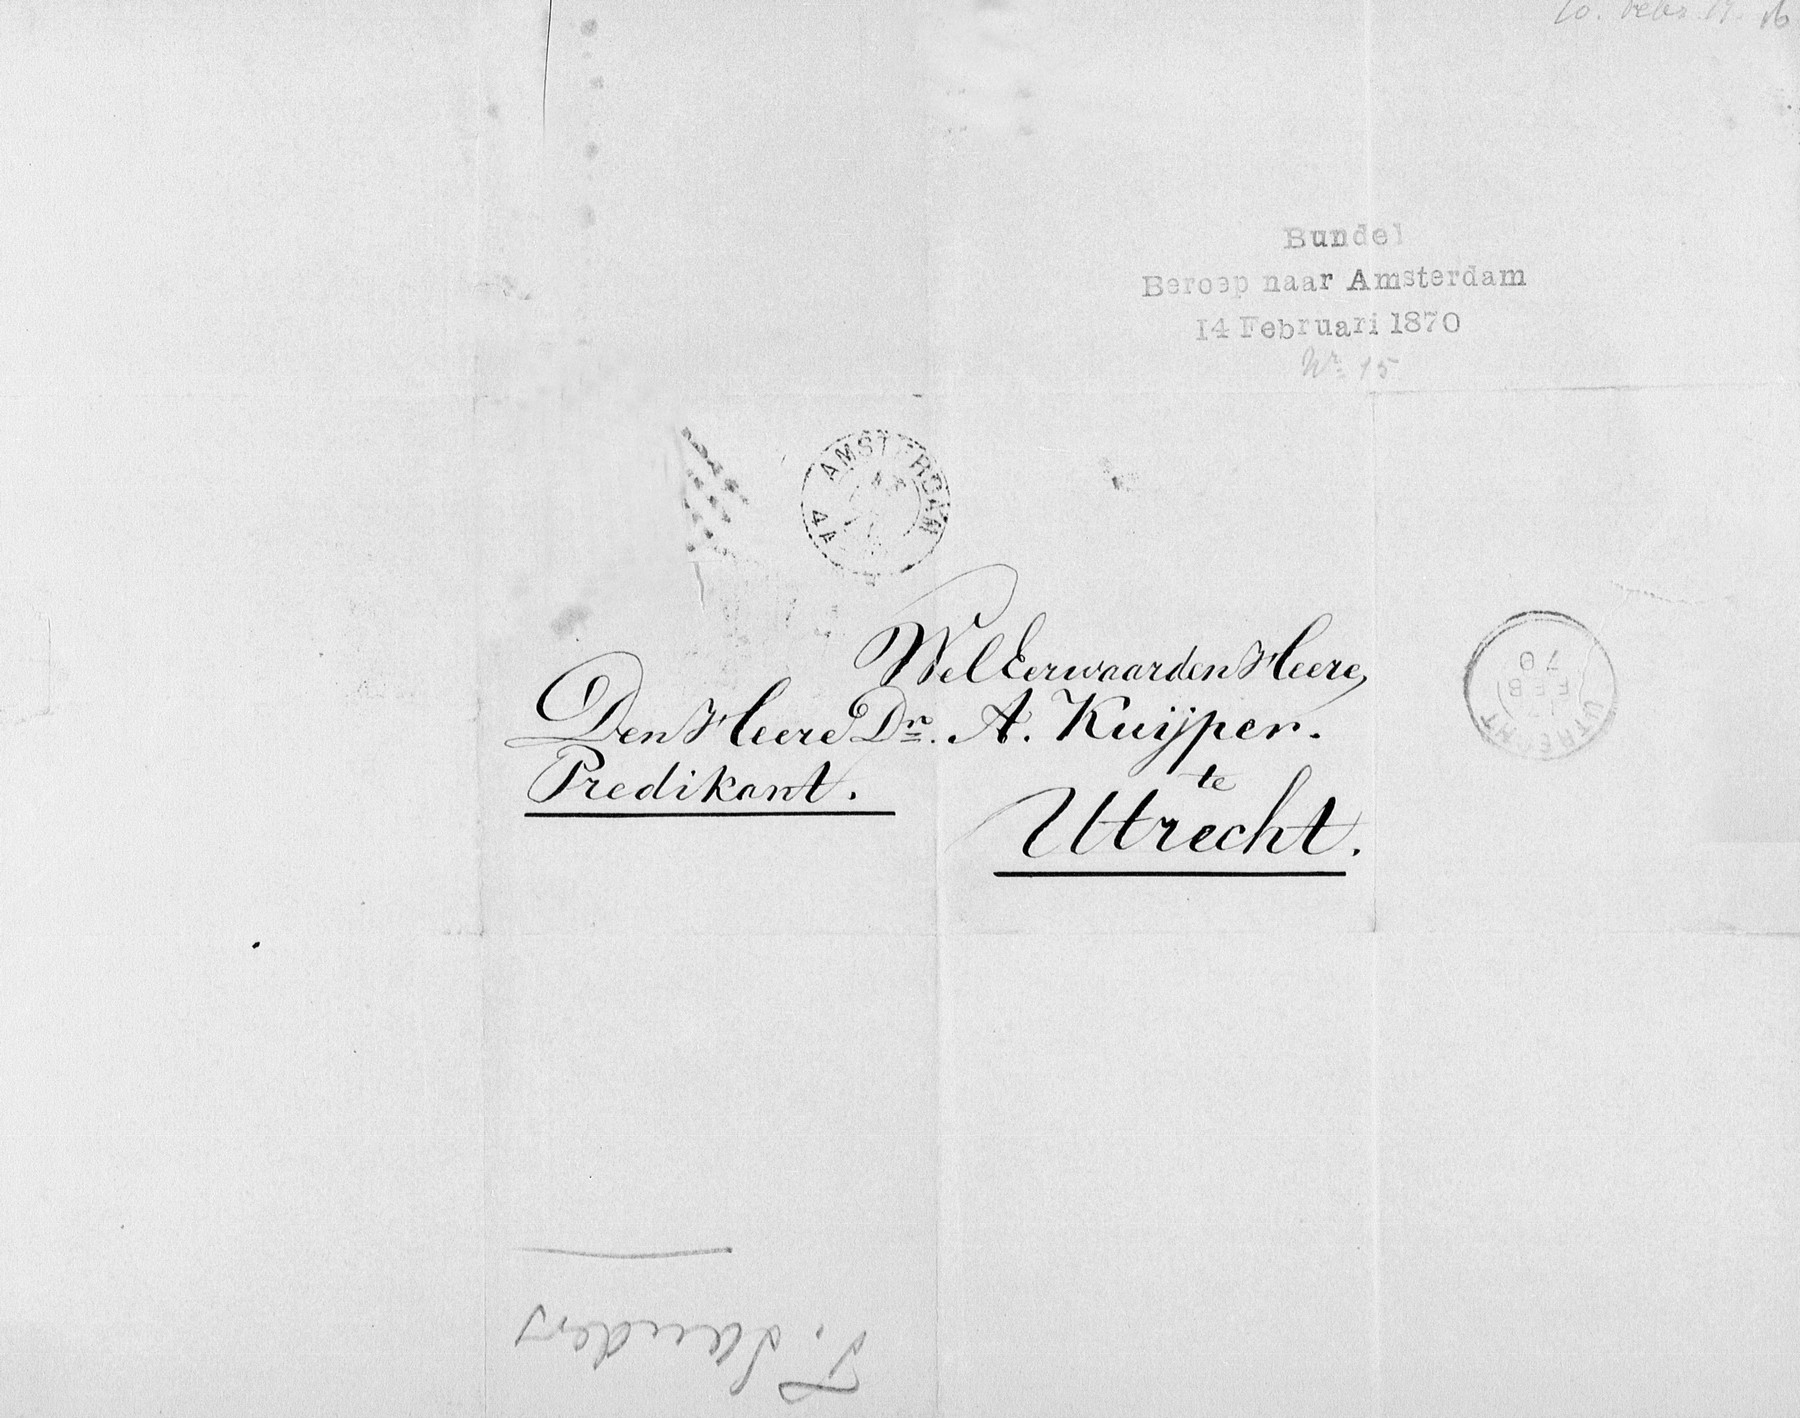 Bundel
Beroep naar Amsterdam
14 Februari 1870
Nr. 15
AMSTERDAM
4A
WelEerwaarden Heere,
Den Heere Dr. A. Kuijper.
Predikant.
te
Utrecht.
UTRECHT
FEB
70
F. Sanders